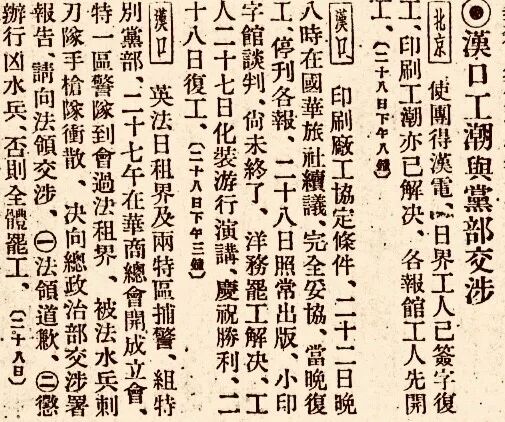 ◉漢口工潮與黨部交涉
北京 使團得漢電、日界工人已簽字復
工、印刷工潮亦已解決、各報館工人先開
工、(二十八日下午八鐘)
漢口 印刷廠工協定條件、二十二日晚
八時在國華旅社續議、完全妥協、當晚復
工、停刊各報、二十八日照常出版、小印
字館談判、尙未終了、洋務罷工解決、工
人二十七日化裝游行演講、慶祝勝利、二
十八日復工、(二十八日下午三鐘)
漢口 英法日租界及兩特區捕警、組特
別黨部、二十七午在華商總會開成立會、
特一區警隊到會過法租界、被法水兵刺
刀隊手槍隊衝散、決向總政治部交涉署
報告、請向法領交涉、㊀法領道歉、㊁懲
辦行凶水兵、否則全體罷工、(二十八日)